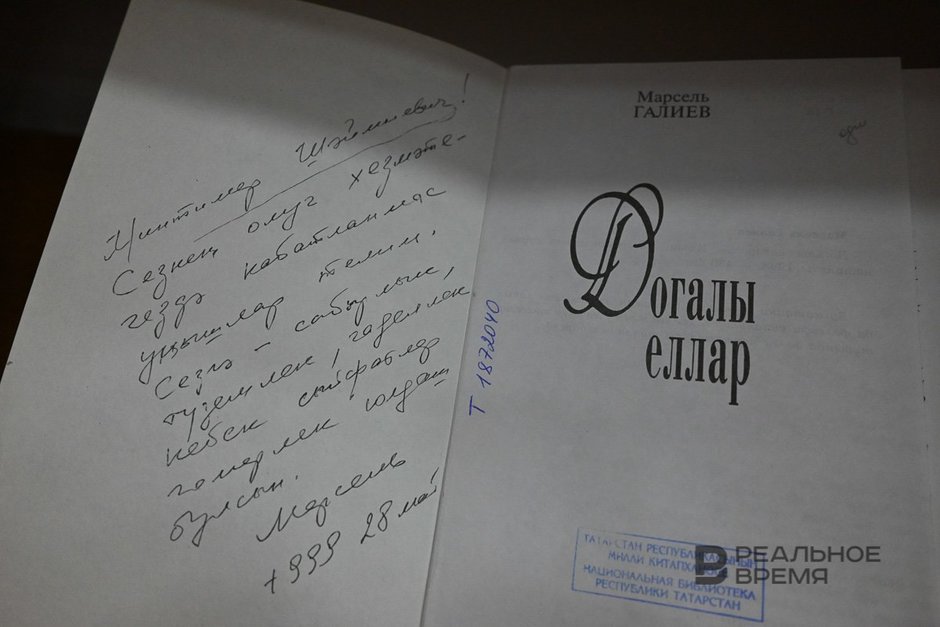 Минтимер Шәймиевич!
Сезнең олуг хезмәте-
гездә кабатланмас
уңышлар телим.
Сезгә - сабырлык,
түземлек, гаделлек
кебек сыйфатлар
гомерлек юлдаш
булсын.
Марсель
1999 28 май
Т 1872040
Марсель
ГАЛИЕВ
Догалы
еллар
ТАТАРСТАН РЕСПУБЛИКАСЫНЫҢ
МИЛЛИ КИТАПХАНӘСЕ
НАЦИОНАЛЬНАЯ БИБЛИОТЕКА
РЕСПУБЛИКИ ТАТАРСТАН
РЕАЛЬНОЕ
ВРЕМЯ